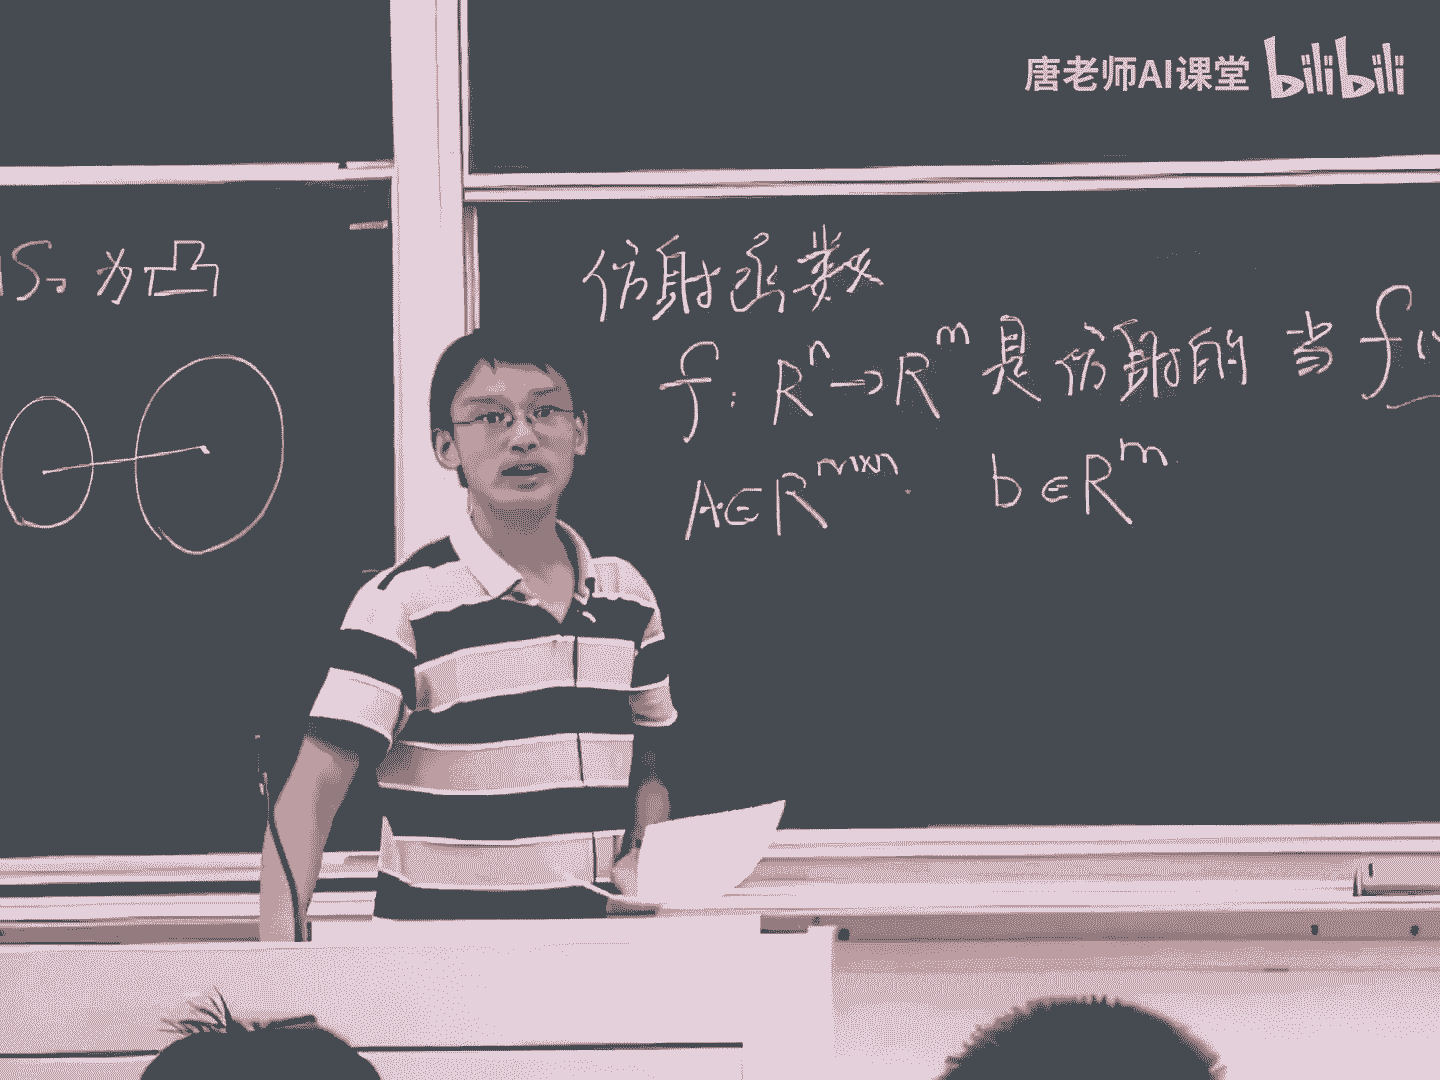 唐老师AI课堂 bilibili
S₂ 为凸
仿射函数
f: Rⁿ→Rᵐ 是仿射的 当 f(
A∈Rᵐˣⁿ. b∈Rᵐ.